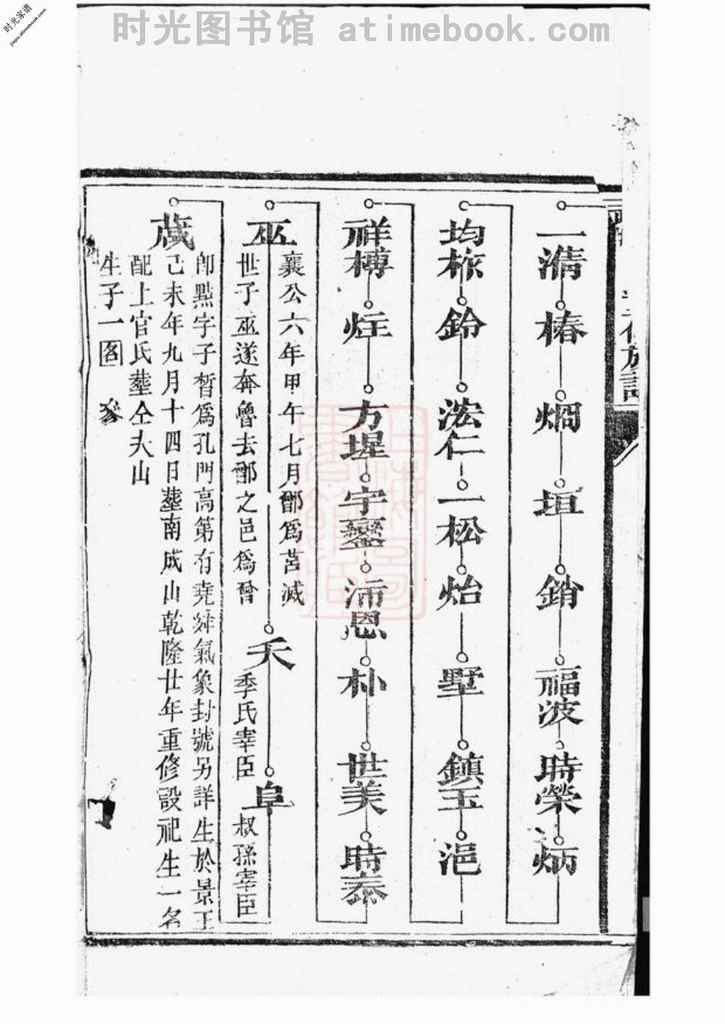 时光图书馆 atimebook.com
时光家谱
一清 椿 炯 垣 銷 福波 時榮 炳
均 鈴 浤仁 一松 炲 墅 鎮玉 浥
祥榑 炷 方墀 宇鑾 沛恩 朴 世美 時泰
巫
襄公六年甲午七月鄫爲莒滅
世子巫遂奔魯去鄫之邑爲曾
夭
季氏宰臣
阜
叔孫宰臣
蒧
即點字子晳爲孔門高第有堯舜氣象封號另詳生於景王
己未年九月十四日塟南成山乾隆廿年重修設祀生一名
配上官氏塟仝夫山
生子一 參